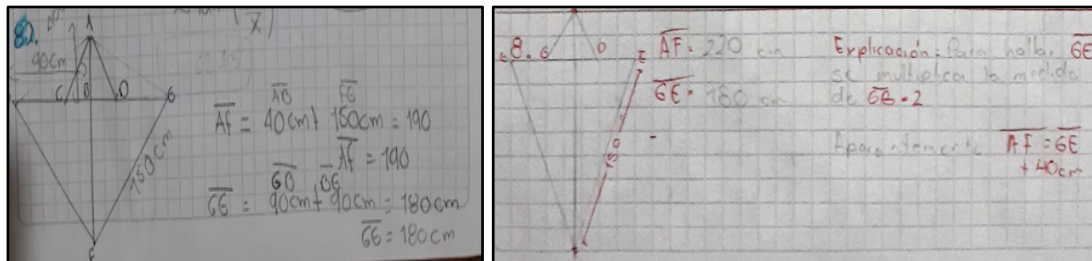 82.
A
90cm
C
B
D
G
AB
FG
AF = 40cm + 150cm = 190
AF = 190
150cm
GB
BE
GE = 90cm + 90cm = 180cm
GE = 180cm
8.
G
D
E
AF = 220 cm
GE = 180 cm
150
Explicación: Para hallar GE
se multiplica la medida
de GB · 2
Aparentemente AF = GE
+ 40cm